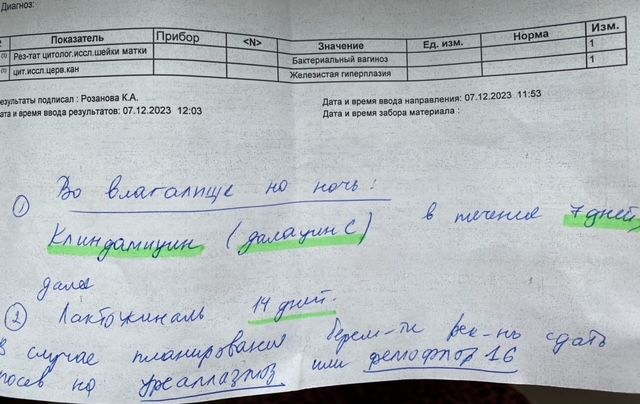 Диагноз:
Показатель Прибор <N> Значение Ед. изм. Норма Изм.
(1) Рез-тат цитолог.иссл.шейки матки Бактериальный вагиноз 1
(1) цит.иссл.церв.кан Железистая гиперплазия 1
езультаты подписал : Розанова К.А. Дата и время ввода направления: 07.12.2023 11:53
ата и время ввода результатов: 07.12.2023 12:03 Дата и время забора материала :
① Во влагалище на ночь:
Клиндамицин (далацин С) в течение 7 дней,
далее
② Лактожиналь 14 дней.
В случае планирования берем-ти рек-но сдать
посев на уреаплазмоз или фемофлор 16